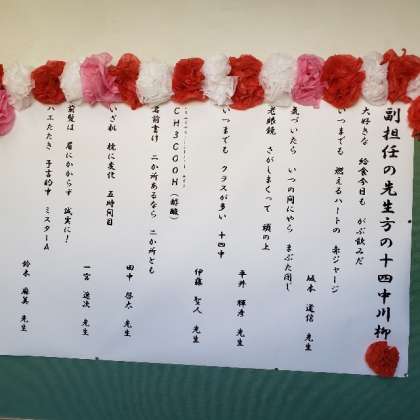 副担任の先生方の十四中川柳
大好きな 給食今日も がぶ飲みだ
いつまでも 燃えるハートの 赤ジャージ
坂本 道信 先生
気づいたら いつの間にやら まぶた閉じ
老眼鏡 さがしまくって 頭の上
平井 輝彦 先生
いつまでも クラスが多い 十四中
伊藤 聖人 先生
CH3COOH（酢酸）
名前書け 二か所あるなら 二か所とも
田中 啓太 先生
いざれ 枕に変化 五時間目
一宮 逸次 先生
前髪は 眉にかからず 誠実に！
ハエたたき 予言的中 ミスターA
鈴木 麻美 先生